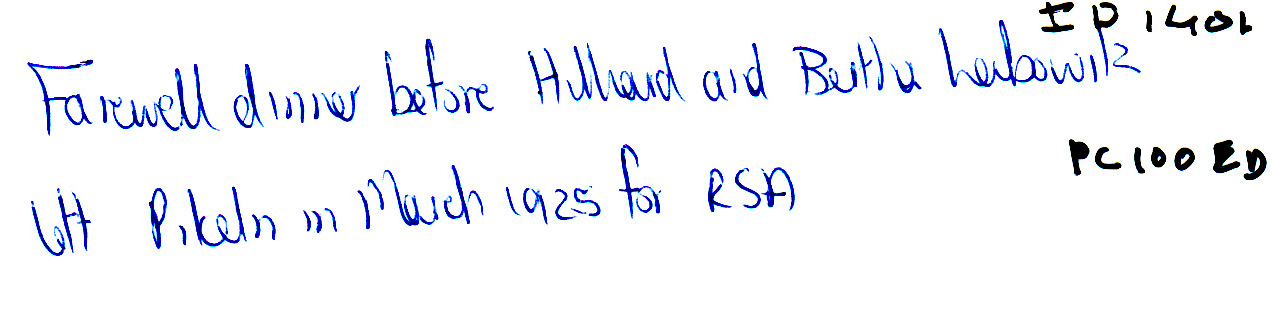 ID 1401
Farewell dinner before Hillard and Bertha Leibowitz
left Pikeln in March 1925 for RSA
PC100 ED